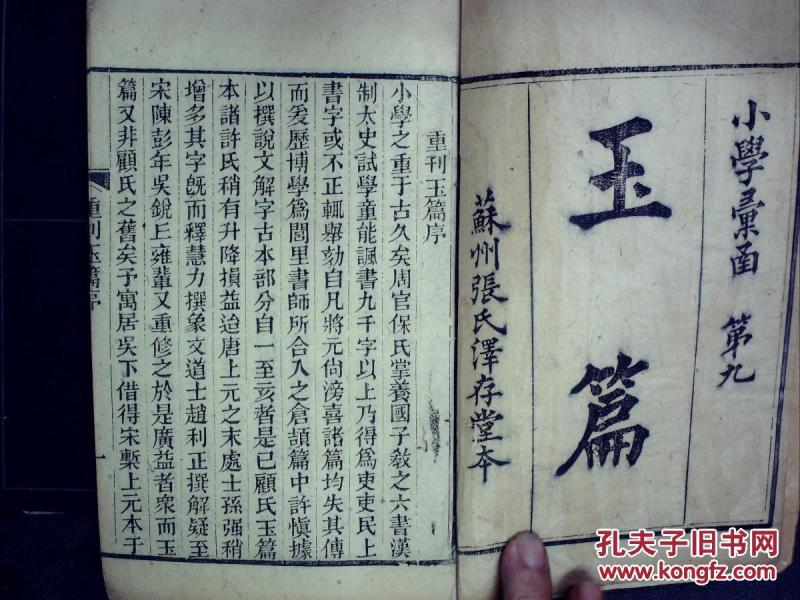 小學彙函　第九
玉篇
蘇州張氏澤存堂本
重刊玉篇序
小學之重于古久矣周官保氏掌養國子敎之六書漢
制太史試學童能諷書九千字以上乃得爲吏吏民上
書字或不正輒舉劾自凡將元尙滂喜諸篇均失其傳
而爰歷博學爲閭里書師所合入之倉頡篇中許愼據
以撰說文解字古本部分自一至亥者是已顧氏玉篇
本諸許氏稍有升降損益迨唐上元之末處士孫强稍
增多其字旣而釋慧力撰象文道士趙利正撰解疑至
宋陳彭年吳銳丘雍輩又重修之於是廣益者衆而玉
篇又非顧氏之舊矣予寓居吳下借得宋槧上元本于
重刊玉篇序
一
孔夫子旧书网
www.kongfz.com